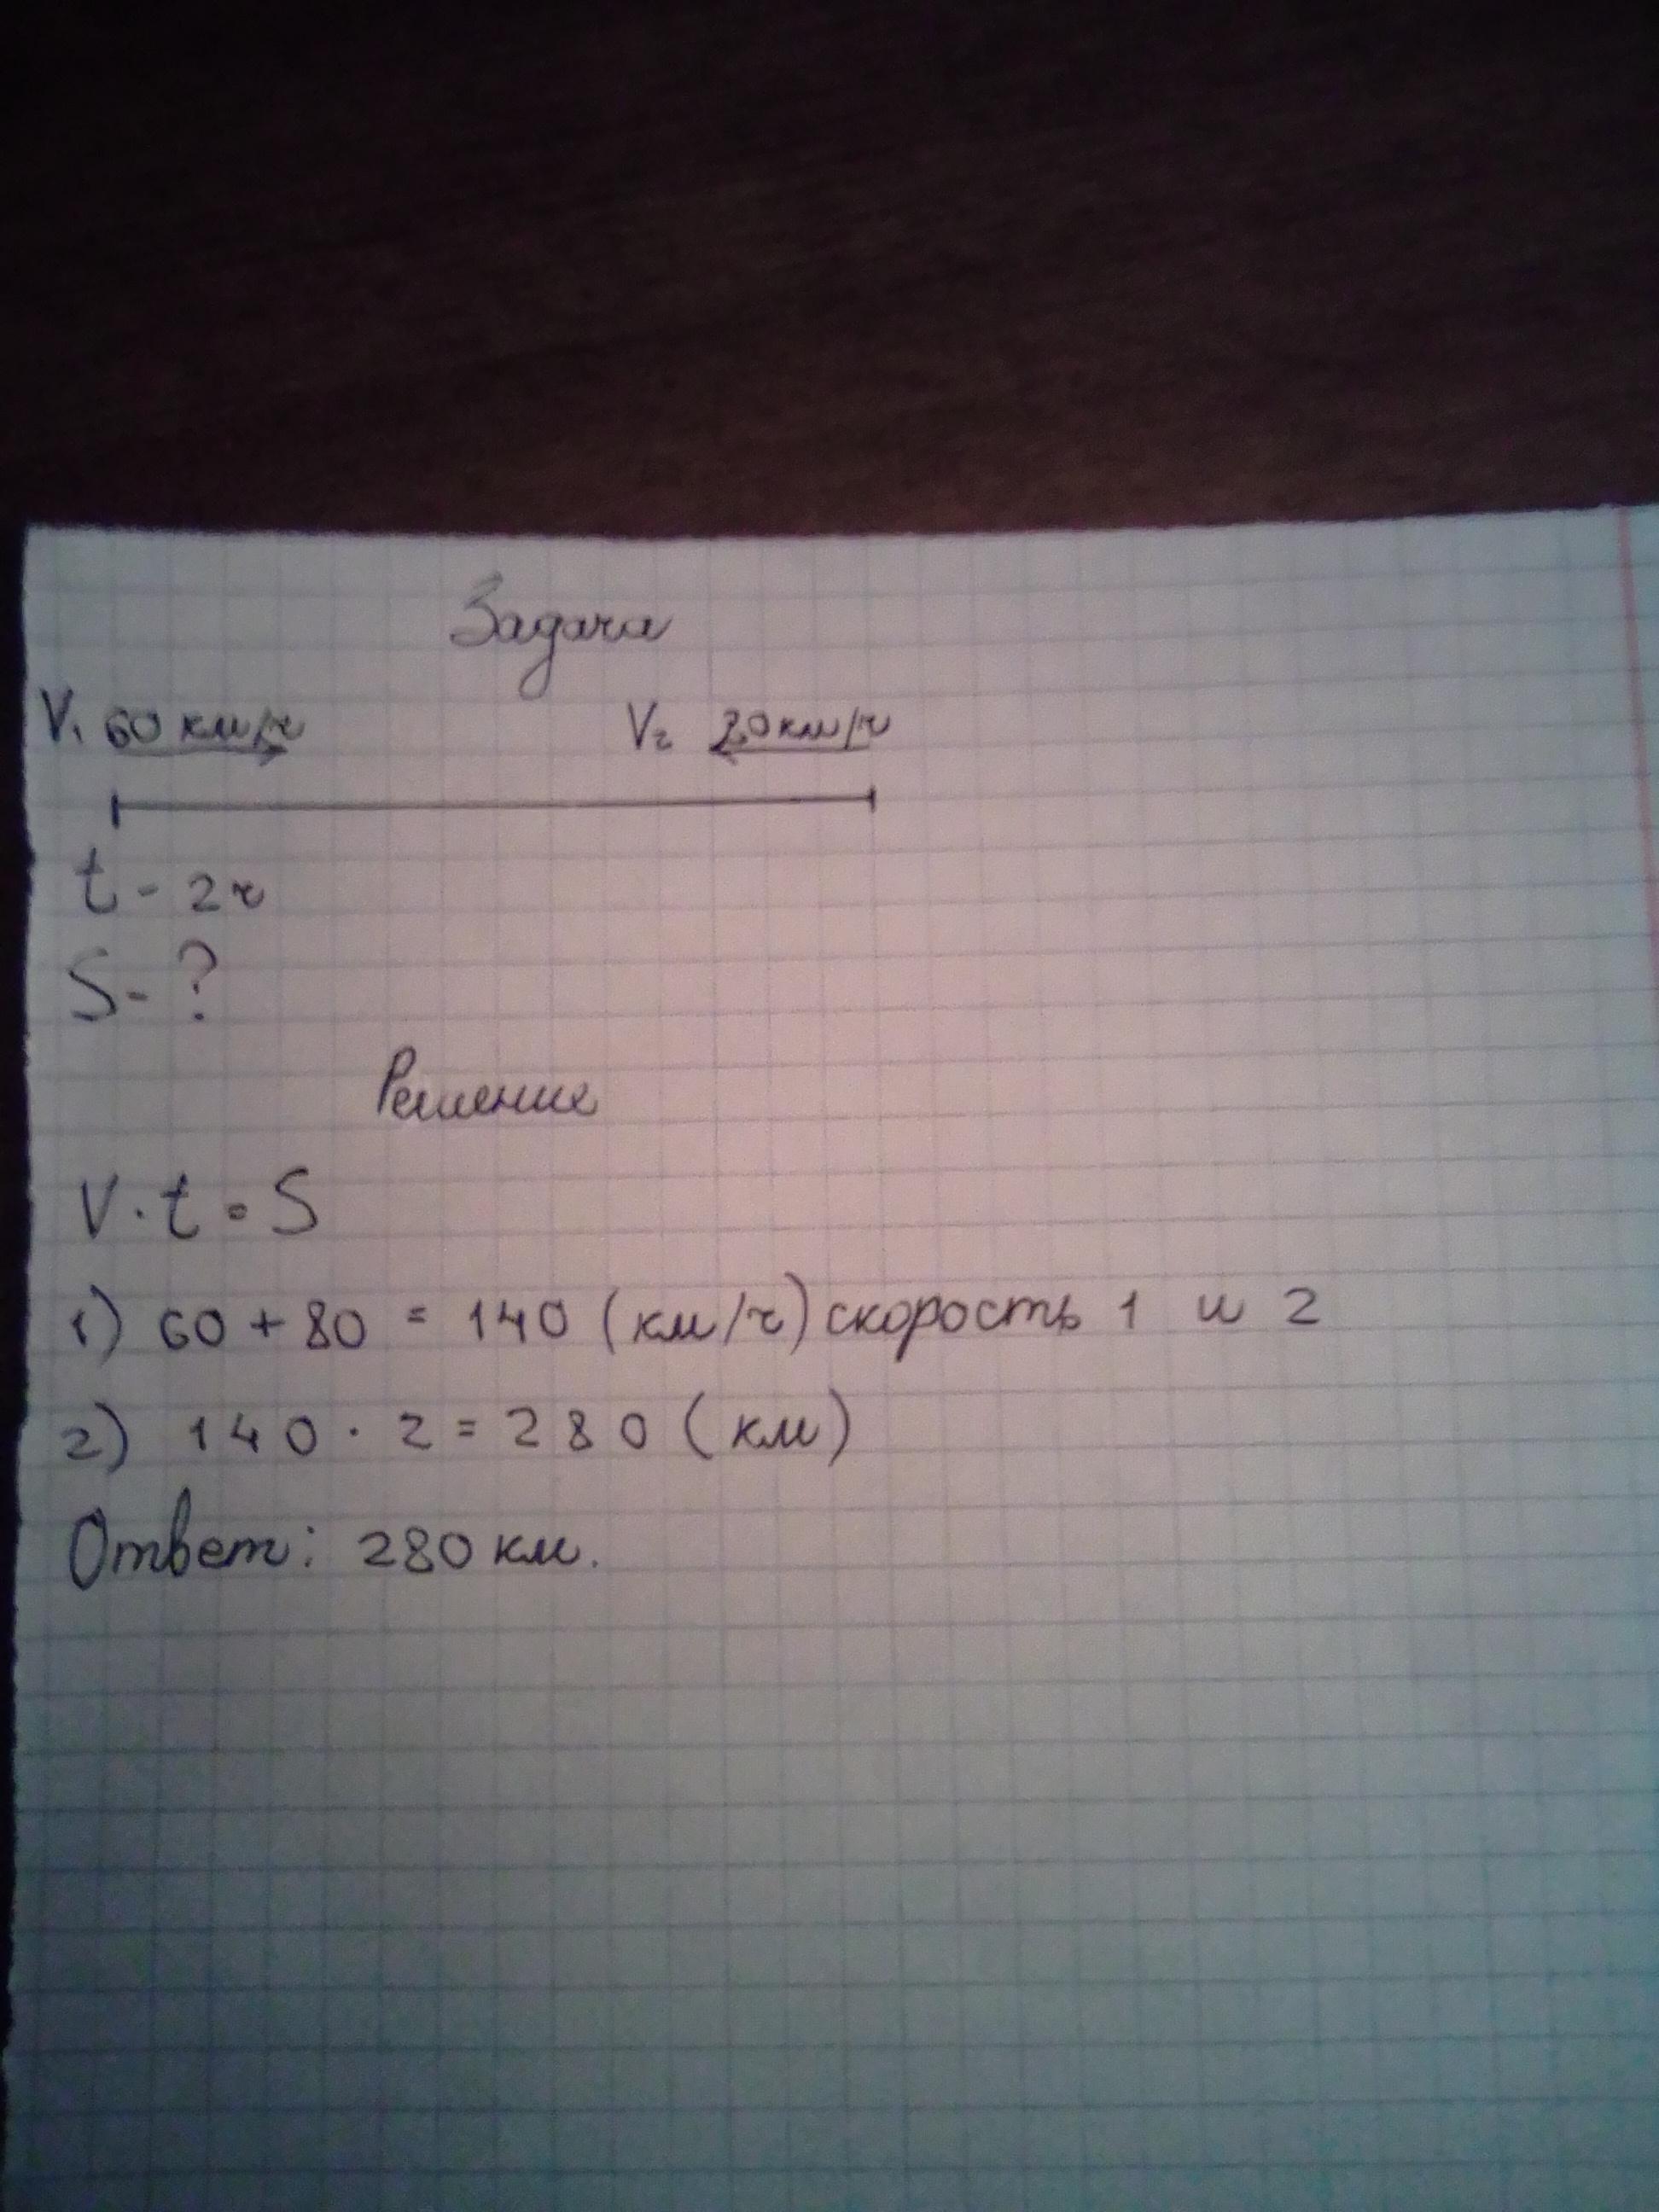 Задача
V₁ 60 км/ч V₂ 80 км/ч
t - 2ч
S - ?
Решение
V · t = S
1) 60 + 80 = 140 (км/ч) скорость 1 и 2
2) 140 · 2 = 280 (км)
Ответ: 280 км.